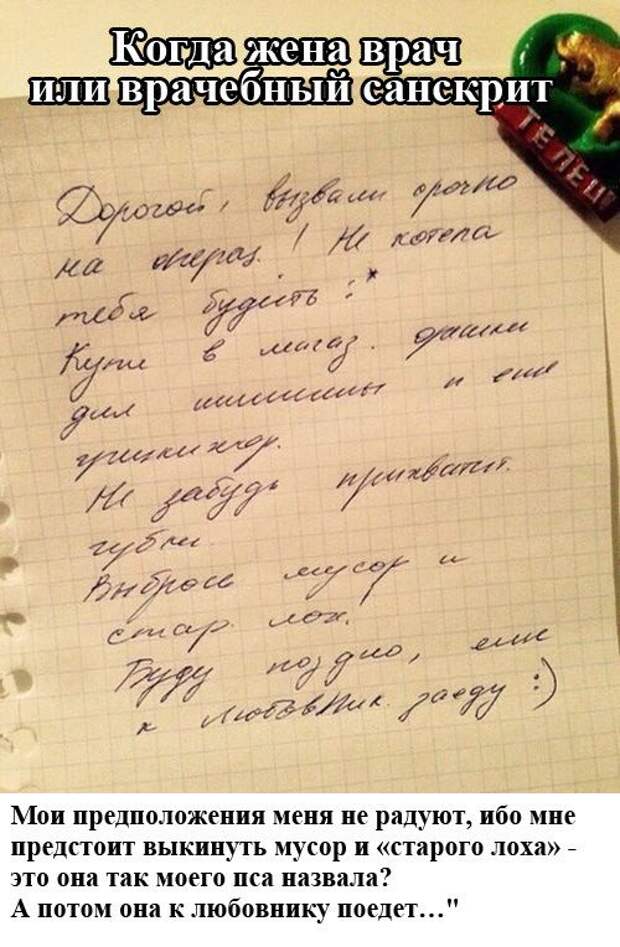 Когда жена врач
или врачебный санскрит
ТЕЛЕЦ
Дорогой, вызвали срочно
на операц. ! Не хотела
тебя будить :*
Купи в магаз.
для и еще
Не забудь прихватит.
губки.
Выброси мусор и
стар. лох.
Буду поздно, еще
к любовник. заеду :)
Мои предположения меня не радуют, ибо мне
предстоит выкинуть мусор и «старого лоха» -
это она так моего пса назвала?
А потом она к любовнику поедет…"